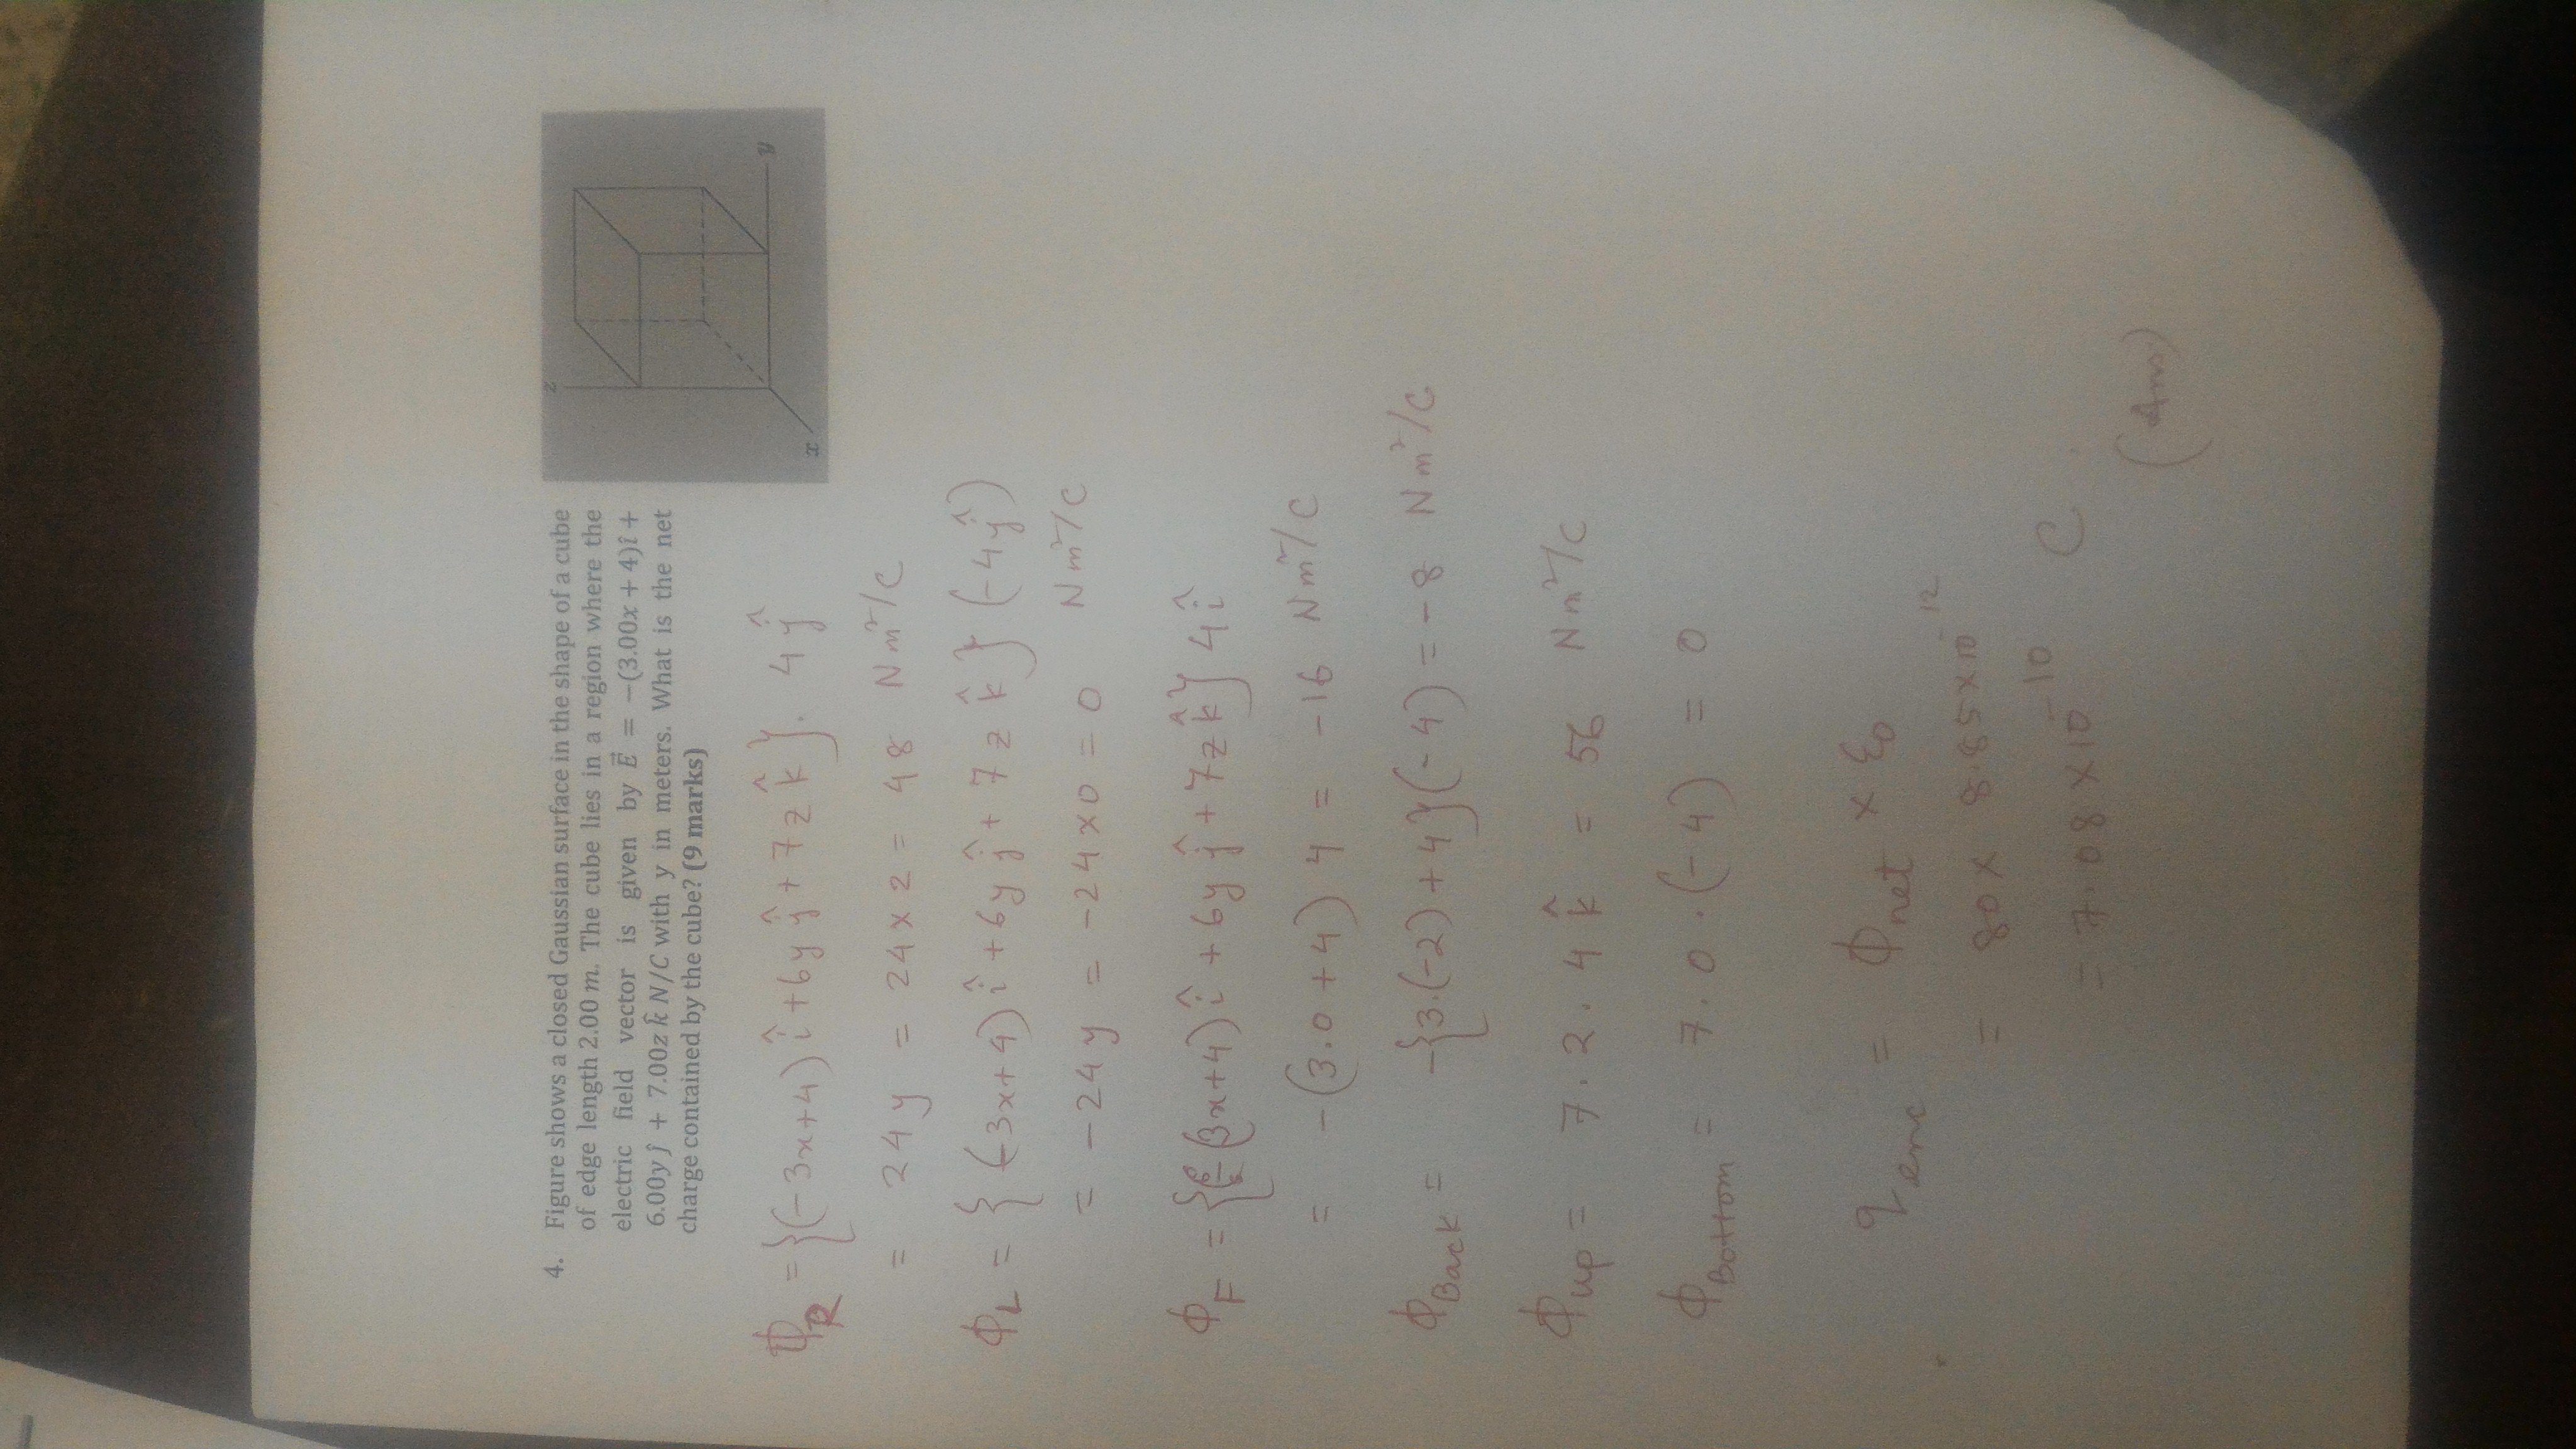 4. Figure shows a closed Gaussian surface in the shape of a cube
of edge length 2.00 m. The cube lies in a region where the
electric field vector is given by E⃗ = −(3.00x + 4)î +
6.00y ĵ + 7.00z k̂ N/C with y in meters. What is the net
charge contained by the cube? (9 marks)
z
x
y
Φ_R = {(-3x+4) î + 6y ĵ + 7z k̂}. 4 ĵ
= 24y = 24×2 = 48 Nm²/C
Φ_L = {(-3x+4) î + 6y ĵ + 7z k̂} (-4ĵ)
= -24y = -24×0 = 0 Nm²/C
Φ_F = {-(3x+4) î + 6y ĵ + 7z k̂} 4 î
= -(3.0+4) 4 = -16 Nm²/C
Φ_Back = -{3.(-2)+4}(-4) = -8 Nm²/C
Φ_up = 7.2.4 k̂ = 56 Nm²/C
Φ_Bottom = 7.0.(-4) = 0
q_enc = Φ_net × ε₀
= 80 × 8.85×10⁻¹²
= 7.08 × 10⁻¹⁰ C.
(Ans)